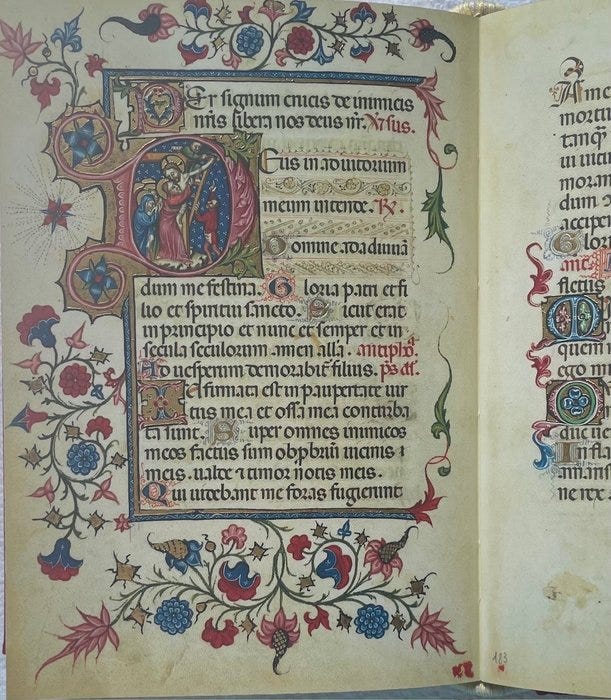 Per signum crucis de inimicis
nris libera nos deus nr. Vsus.
Deus in adiutorium
meum intende. R.
Domine ad adiuuā
dum me festina. Gloria patri et fi
lio et spiritui sancto. Sicut erat
in principio et nunc et semper et in
secula seculorum amen alla. antiphō.
Ad uesperum demorabit fletus. ps dd.
Infirmata est in paupertate uir
tus mea et ossa mea conturba
ta sunt. Super omnes inimicos
meos factus sum obpbriū uicinis
meis. ualde et timor notis meis.
Qui uidebant me foras fugierunt
Ame
mortu
tamq̄
ui uici
moran
dum
accipe
Glori
ant
fletus
quem
ego mi
duc ue
Infla
ne rex
183